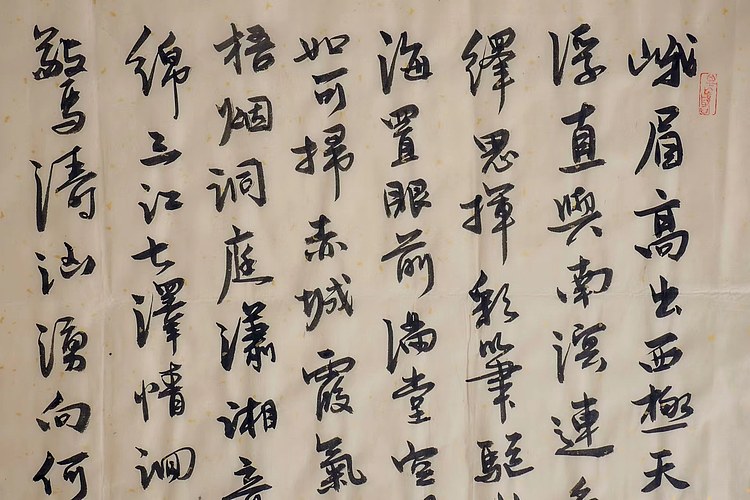 峨眉高出西極天
浮直與南溟連名
繹思揮彩筆驅
海置眼前滿堂空
如可掃赤城霞氣
梧烟洞庭瀟湘意
綿三江七澤情洄
驚濤洶湧向何